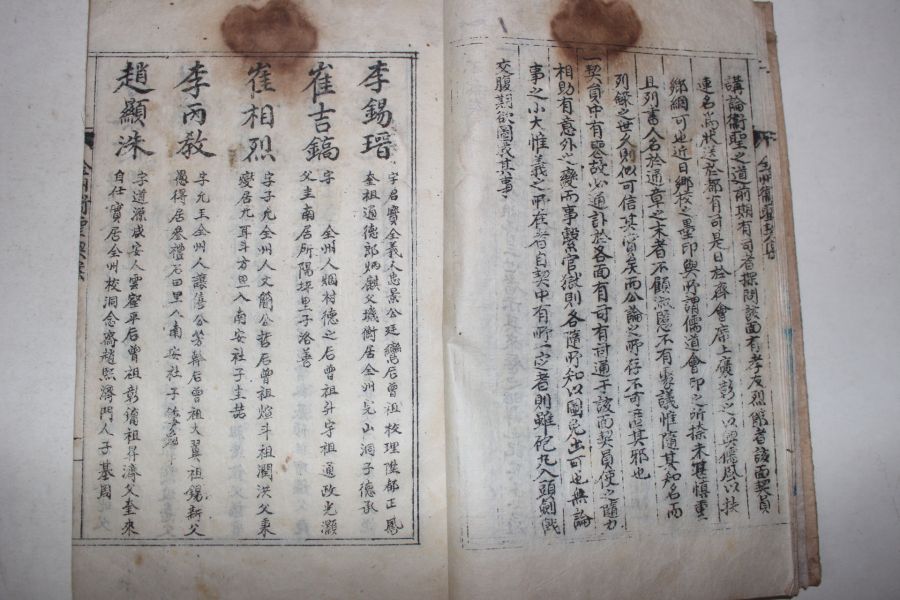 講論衛聖之道前期有司者探問該面有孝友烈節者該面契員
連名為狀送於都有司是日於齊會席上廣彰之以興儒風以扶
鄉綱可也近日鄉校之墨印與所謂儒道會印之所捺未甚慎重
且列書人名於通章之末者不顧淑慝不有衆議惟隨其知名而
列錄之世久則似可信其實矣而公論之所存不可否其邪也
一契員中有喪故必通訃於各面有司有司通于該面契員使之隨力
相助有意外之變而事繫官獄則各隨所知以圖免出可也無論
事之小大惟義之所在者自契中有所定者則雖砲丸入頭劍戟
交腹期欲圖
其事
李錫瑨
字君寶全義人忠景公廷鸞后曾祖校理陞郁正鳳
奎祖通德郎炳麒父璣衡居全州完山洞子德承
崔吉鎬
字 全州人烟村德之后曾祖升宇祖通政光灝
父圭南居所陽坪里子洛善
崔相烈
字子允全州人文簡公哲后曾祖煊斗祖潤洪父秉
燮居九耳斗方里入南安社子圭喆
李丙敎
字允玉全州人讓僖公芳幹后曾祖大翼祖錫新父
愚得居參禮石田里入南安社子
趙顯洙
字道源咸安人雲壑平后曾祖彰鏞祖昇濟父奎來
自任實居全州校洞念窩趙熙濟門人子基周